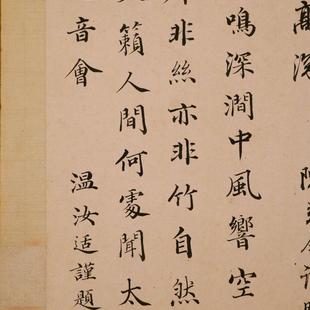 高深
鳴深澗中風響空
非絲亦非竹自然
籟人間何處聞太
音會
温汝适謹題